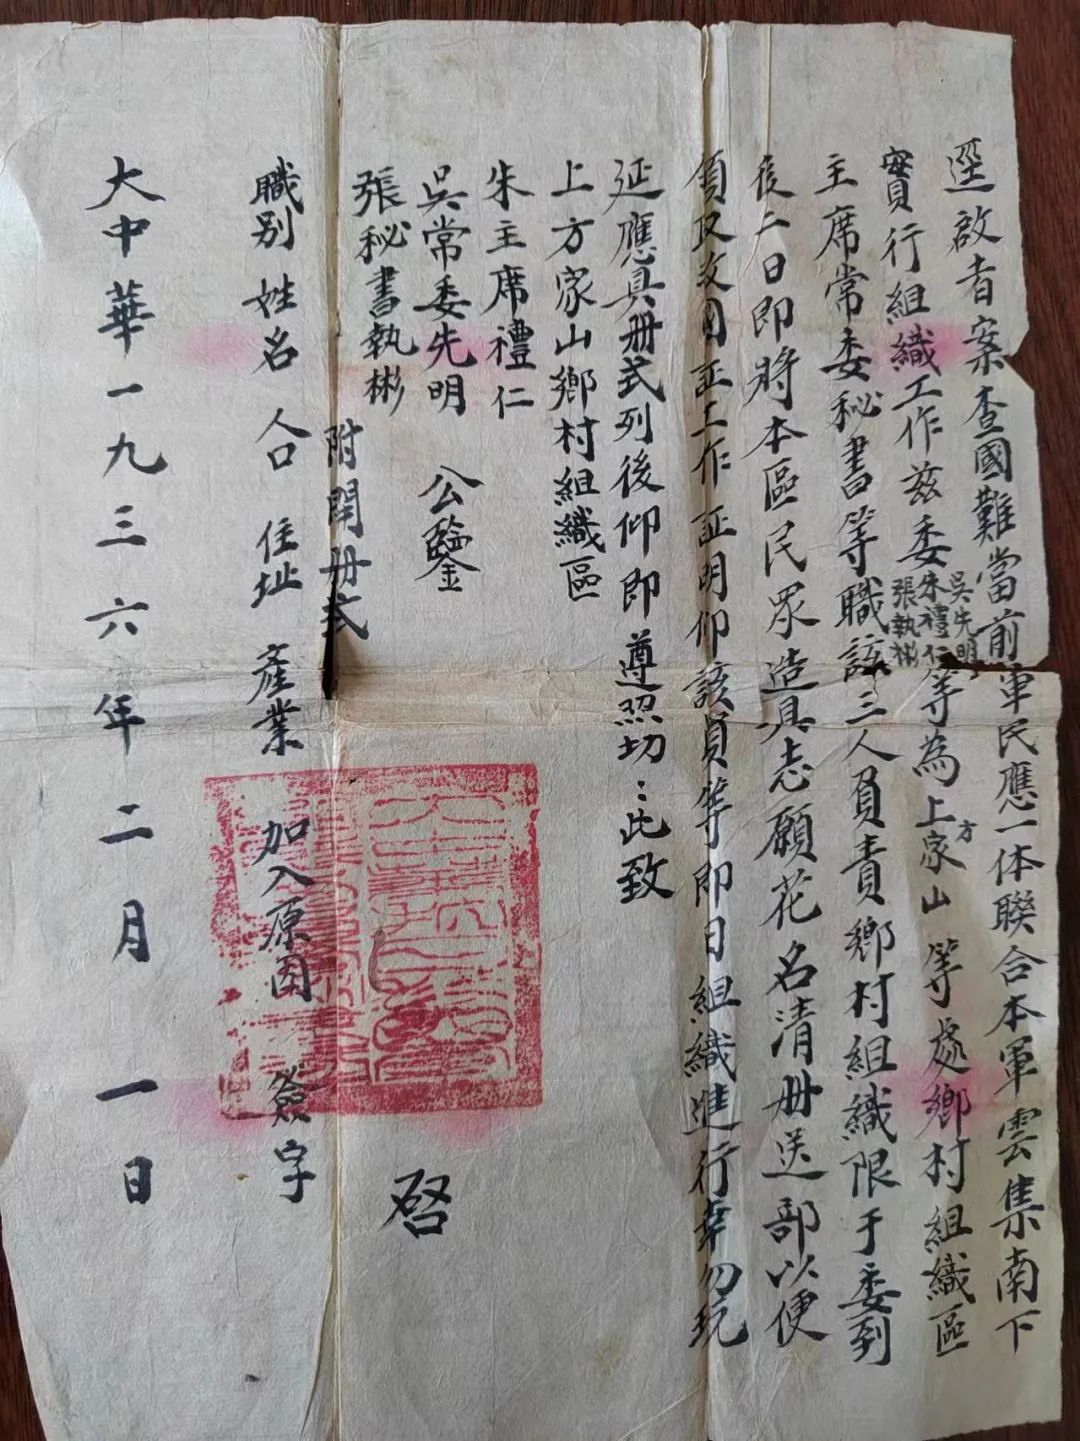 逕啟者案查國難當前軍民應一体聯合本軍雲集南下
實行組織工作兹委吳先明朱禮仁張執彬等為上方家山等處鄉村組織區
主席常委秘書等職該三人負責鄉村組織限于委到
後二日即將本區民眾造具志願花名清冊送部以便
領取救国証工作証明仰該員等即日組織進行幸勿玩
延應具冊式列後仰即遵照切：此致
上方家山鄉村組織區
朱主席禮仁
吳常委先明 公鑒
張秘書執彬
附開冊式
啓
職别 姓名 人口 住址 產業 加入原因 簽字
大中華一九三六年二月一日